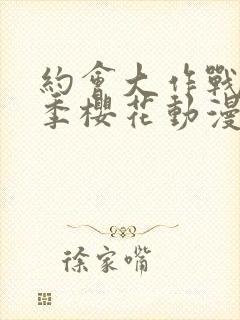 約會大作戰
季櫻花動漫
徐家嘴